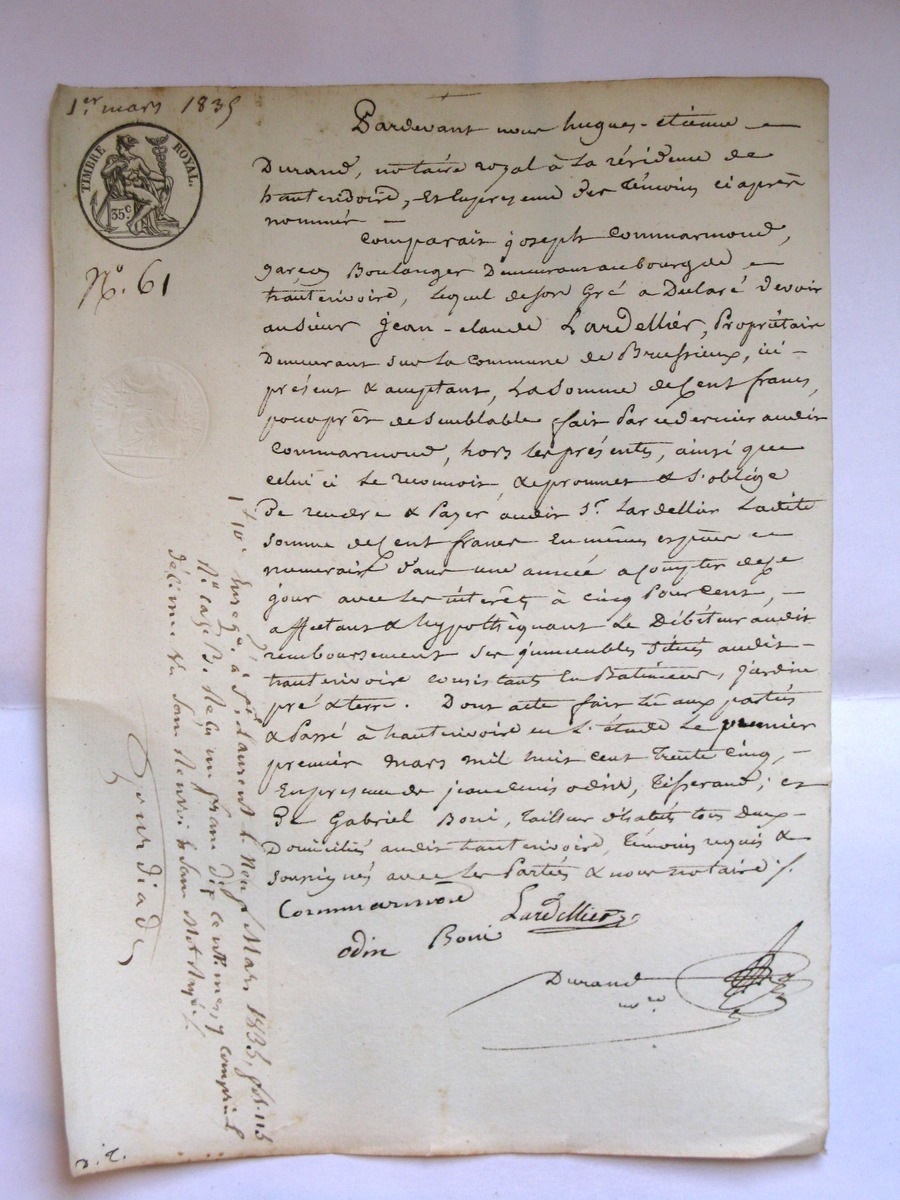 1er mars 1835
TIMBRE ROYAL.
35 c
No. 61
Pardevant nous hugues-étienne
Durand, notaire royal à La résidence de
hauterivoire, Et En presence des Témoins ci après
nommés
Comparait joseph Commarmond,
garçon Boulanger Demeurant au bourg de
hauterivoire, Lequel de son Gré a Déclaré devoir
au sieur Jean-claude Lardellier, Propriétaire
Demeurant sur La Commune de Brussieux, ici
présent & acceptant, La Somme de Cent francs,
pour prêt de Semblable fait Par ce dernier audit
Commarmond, hors les présentes, ainsi que
celui ci Le reconnoit, & promet & S'oblige
De rendre & Payer audit Sr. Lardellier Ladite
Somme de Cent francs En mêmes espèces
numeraire dans une année a Compter de ce
jour avec Les intérêts à cinq Pour Cent,
affectant & hypothéquant Le Débiteur audit
remboursement Ses immeubles Situés audit
hauterivoire consistants En Batiments, jardin
pré & terre. Dont acte fait Lu aux parties
& Passé à hauterivoire en L'étude Le premier
premier mars mil huit cent trente cinq,
En presence de jean Odin, Tisserand, et
De Gabriel Boni, Tailleur d'habits tous deux
Domiciliés audit hauterivoire, Témoins requis &
soussignés avec Les Parties & nous notaire ./.
Commarmond
Lardellier
odin Boni
Durand
nre
Enregé. à St Laurent le Neuf Mars 1835, fol. 115
Ro case 8. Reçu un franc dix centimes y compris le
décime